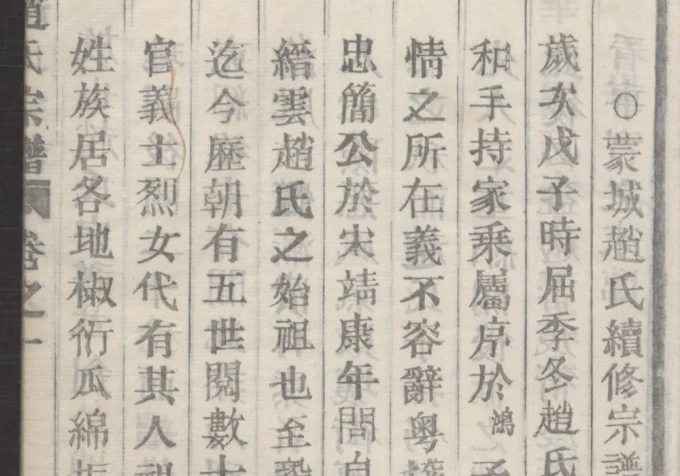 ○蒙城趙氏續修宗譜
歲次戊子時屆季冬趙氏
和手持家乘屬序於鴻子
情之所在義不容辭粤
忠簡公於宋靖康年間自
縉雲趙氏之始祖也至
迄今歷朝有五世閱數十
官義士烈女代有其人祖
姓族居各地椒衍瓜綿振
趙氏宗譜 卷之一